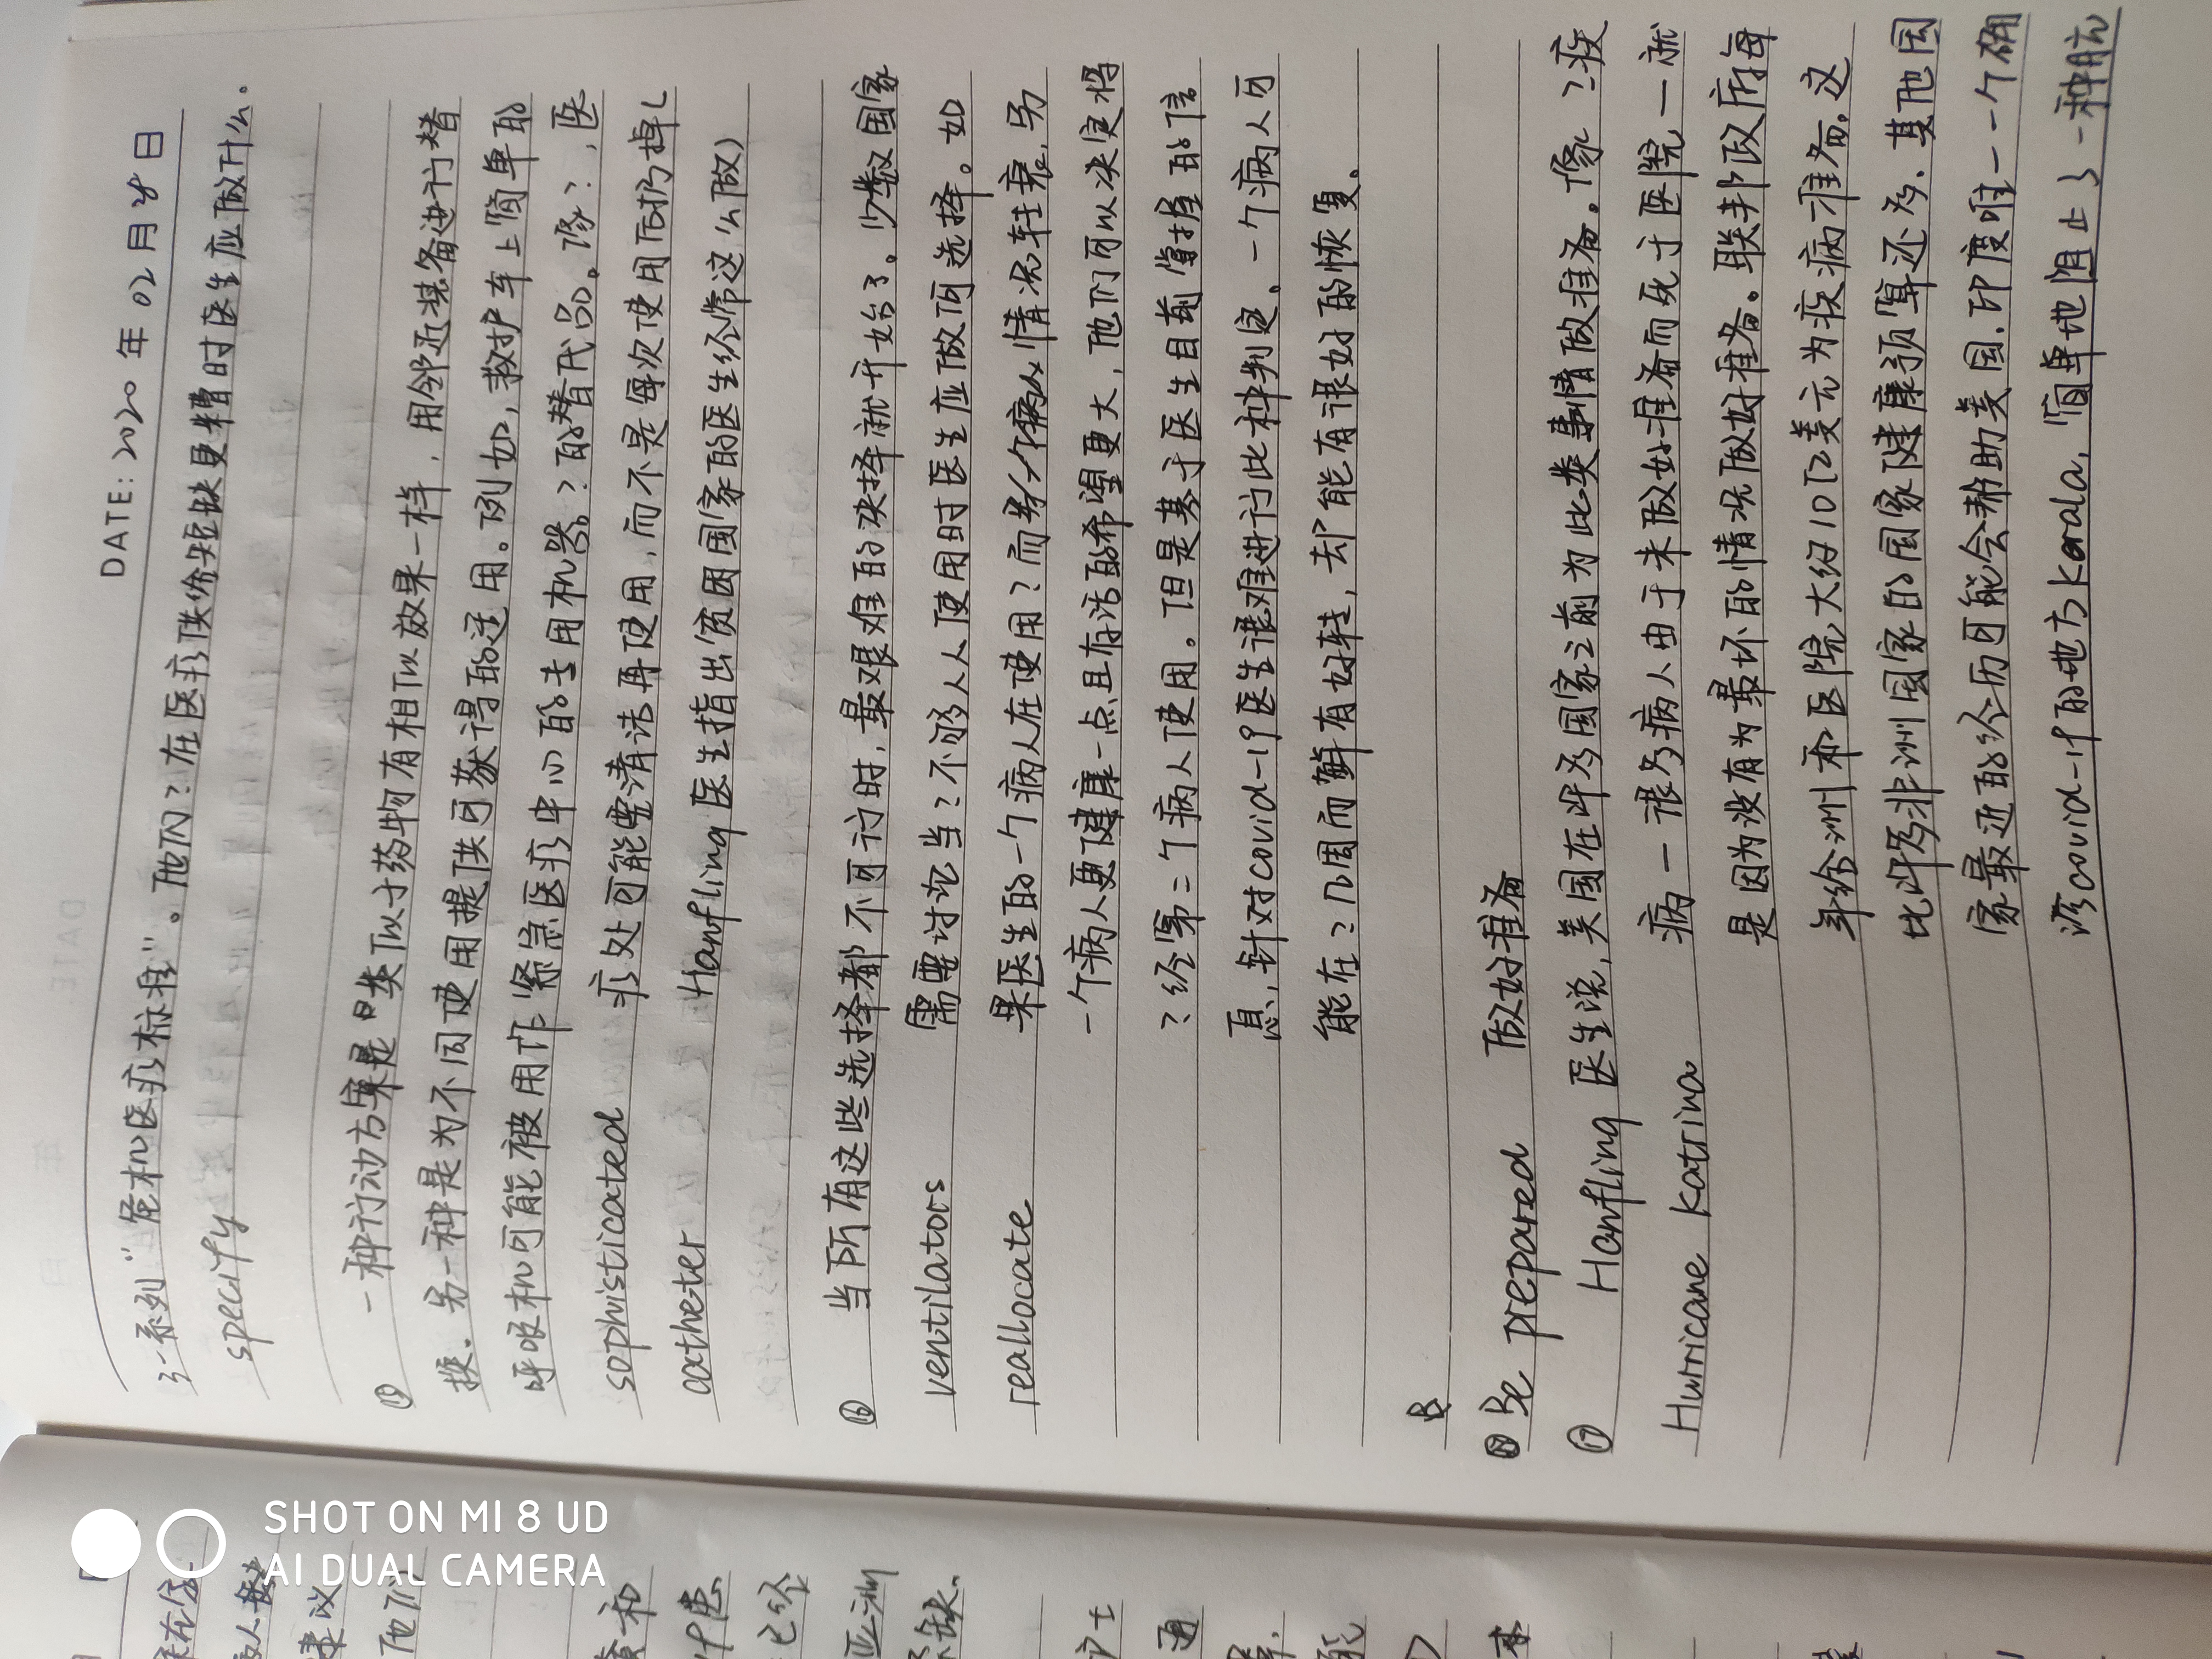 DATE: 2020 年 02 月 28 日
了一系列“危机医疗标准”。他们?在医疗供给短缺更糟时医生应做什么。
specify
⑮ 一种行动方案是 类似于药物有相似效果一样，用邻近某备进行替
换. 另一种是为不同使用提供可获得的适用。例如, 救护车上简单的
呼吸机可能被用作紧急医疗中心的专用机器?的替代品。像?, 医
sophisticated 疗处可能要清洁再使用, 而不是每次使用后扔掉 (
catheter Hanfling 医生指出贫困国家的医生经常这么做)
⑯ 当所有这些选择都不可行时, 最艰难的决择就开始了。少数国家
ventilators 需要讨论当?不够人人使用时医生应做何选择。如
reallocate 果医生的一个病人在使用?而 情况转衰, 另
一个病人更健康一点且存活的希望更大, 他们可以决定将
?给第二个病人使用。但是基于医生目前掌握的信
息, 针对covid-19医生很难进行此种判定. 一个病人可
能在?几周而鲜有好转, 却能有很好的恢复.
B
Be prepared 做好准备
⑰ Hanfling 医生说, 美国在许多国家之前为此类事情做准备。像?疫
Hurricane Katrina 病一很多病人由于未做好准备而死于医院一就
是因为没有为最坏的情况做好准备。联邦政府每
年给州和医院大约10亿美元为疫病准备, 这
比许多非洲国家的国家健康预算还多. 其他国
家最近的经历可能会帮助美国. 印度唯一一个确
诊covid-19的地方Kerala, 简单地阻止了一种
SHOT ON MI 8 UD
AI DUAL CAMERA
建议
他们
和
已经
亚洲
缺.
护士
通